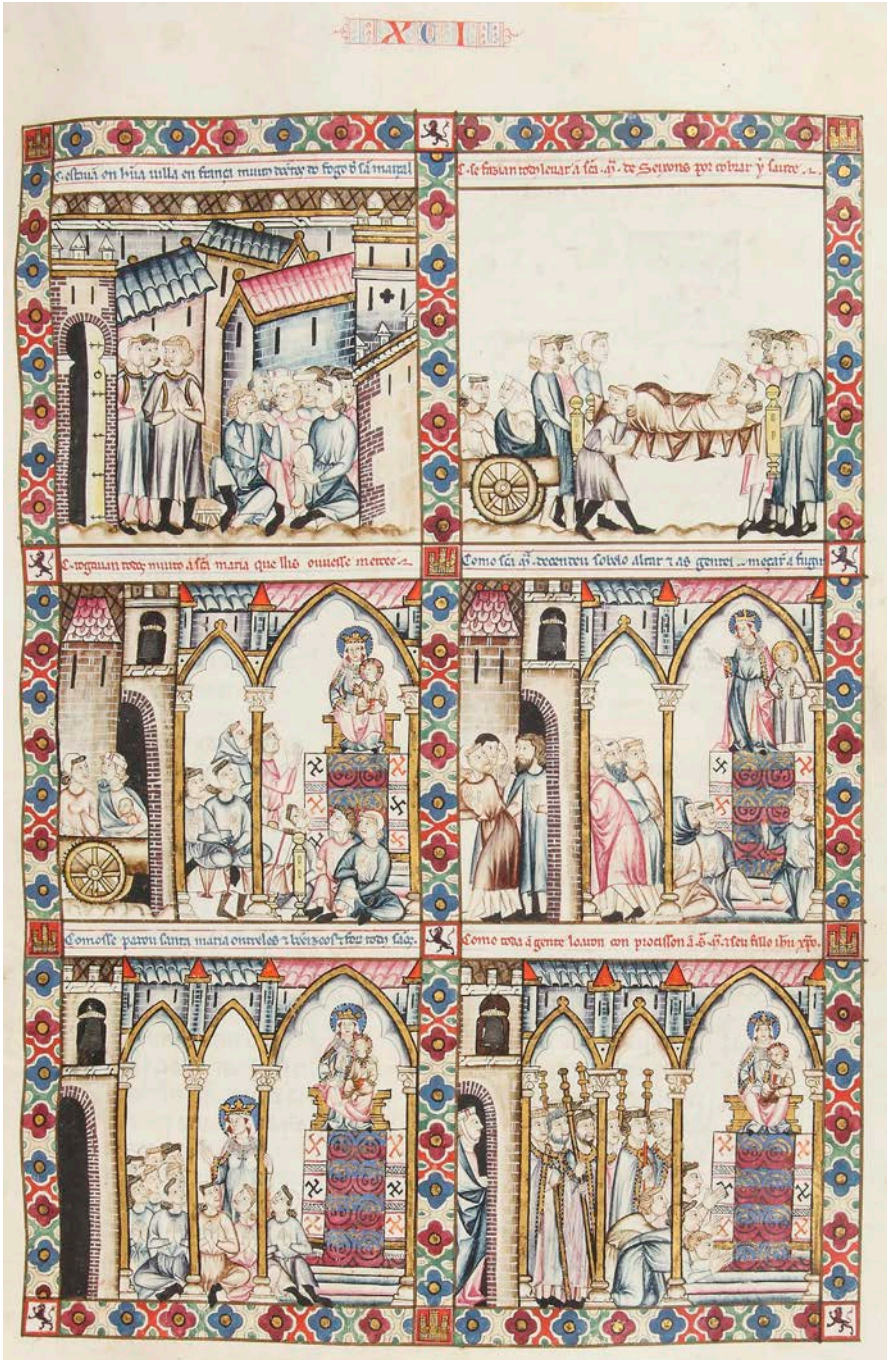 XCI
C. estavã en hũa uilla en frança muito doctoc do fogo d sã marçal
C. se fazian todꝯ leuar a scã .mᵃ. de Seixons por cobrar y saude.
C. rogauan todos muito a scã maria que llis ouuesse mercee.
Como scã mᵃ. decendeu sobelo altar ⁊ as gentes a fugir
Comosse parou santa maria ontreles ⁊ ⁊ todꝯ sãos.
Como toda a gente loaron con procisson a s mᵃ. ⁊ seu fillo ihu xp̃o.